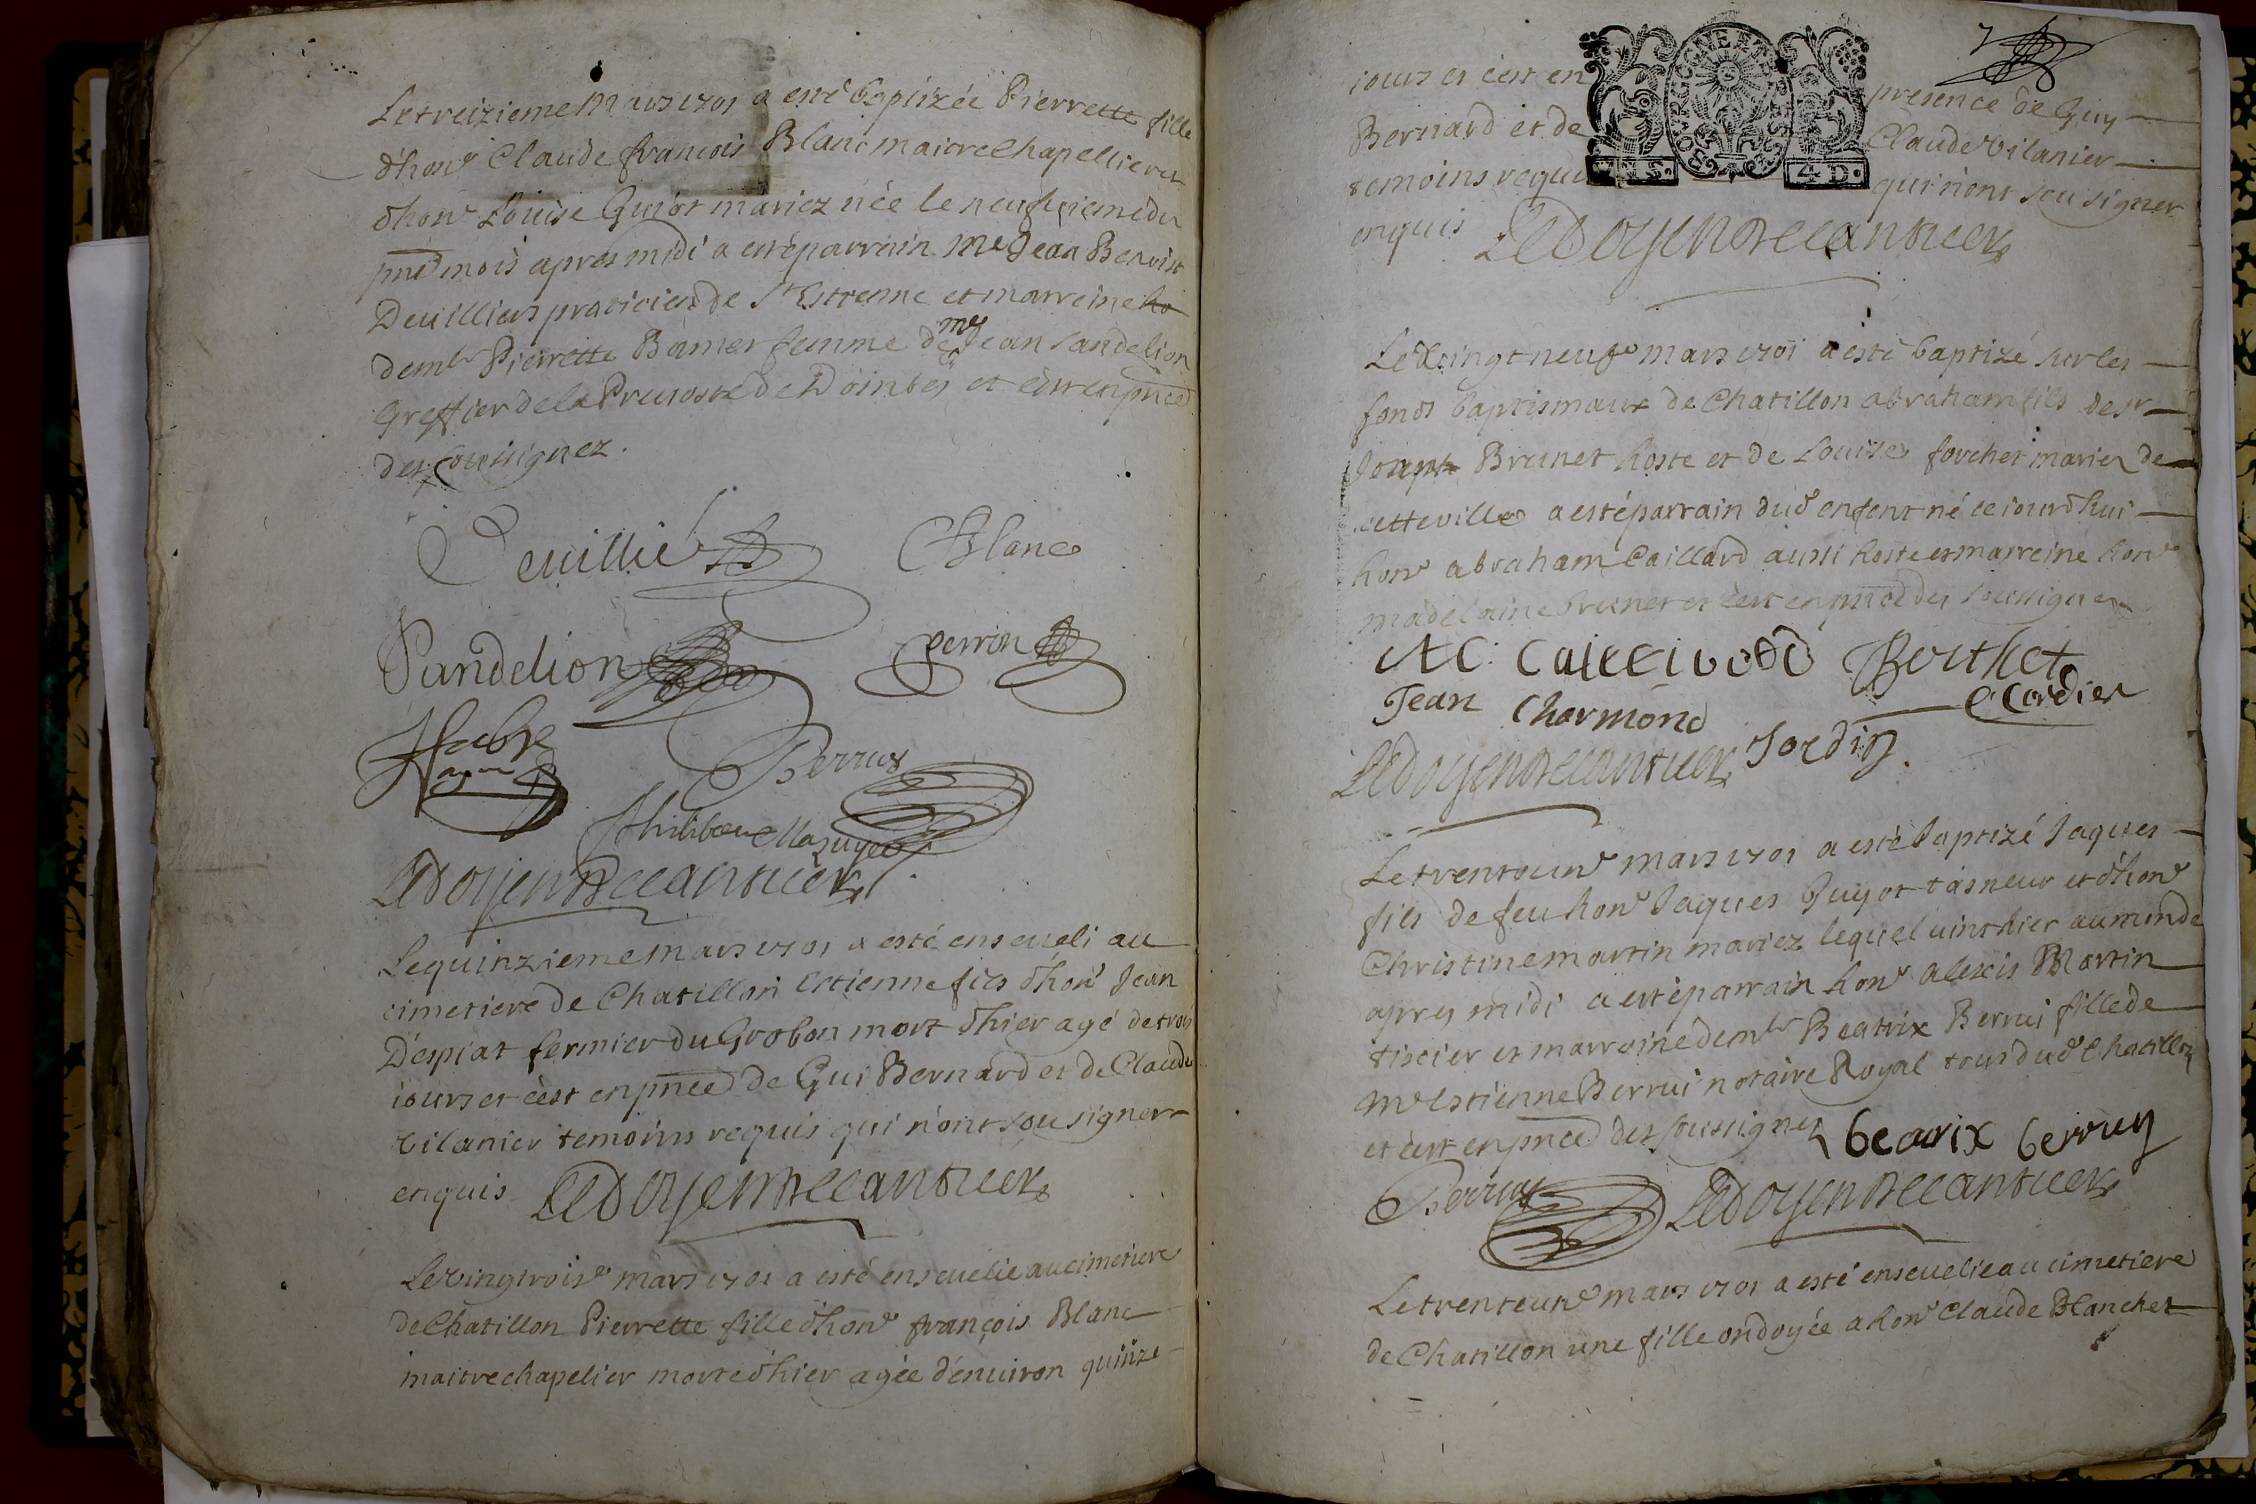 Le treizieme mars 1701 a esté baptizée Pierrette fille
d'hon^e Claude françois Blanc maitre chapellier et
d'hon^e Louise Guiot mariez née le neufvieme du
pñt mois apres midi a esté parrain M^e Jean Benoist
Deuilliers praticien de S^t Estienne et marreine
dem^lle Pierrette Bamer femme de m^e Jean Pandelion
greffier de la Preuosté de et c'est en pñce
des soussignez.
Deuillié CBlanc
Pandelion perrin
Fabre Berruy
Philibert Mazuyer
Le Doyen De Cantuer
Le quinzieme mars 1701 a esté enseueli au
cimetiere de Chatillon Estienne fils d'hon^e Jean
D'espiat fermier du Grobon mort d'hier agé de trois
iours et c'est en pñce de Gui Bernard et de Claude
Vilanier temoins requis qui n'ont sçu signer
enquis Le Doyen De Cantuer
Le vingtrois^e mars 1701 a esté enseuelie au cimetiere
de Chatillon Pierrette fille d'hon^e françois Blanc
maitre chapelier morte d'hier agée d'enuiron quinze
7
iours et c'est en presence de Guy
Bernard et de Claude Vilanier
temoins requis qui n'ont sceu signer
enquis Le Doyen De Cantuer
BOURGOGNE ET
4 D.
Le Vingt neuf^e mars 1701 a esté baptizé sur les
fonds baptismaux de Chatillon abraham fils de s^r
Joseph Brunet hoste et de Louise forchet mariez de
cette ville a esté parrain dud^t enfent né ce iourd'hui
hon^e abraham Caillard aussi hoste et marreine hon^e
madelaine brunet et c'est en pñce des soussignez
Berthet
Jean Charmond C Cordier
Le Doyen De Cantuer Jordin.
Le trenteun^e mars 1701 a esté baptizé Jaques
fils de feu hon^e Jaques Guyot tasneur et d'hon^e
Christine martin mariez lequel uint hier au monde
apres midi a esté parrain hon^e alexis Martin
tissier et marreine dem^lle Beatrix Berrui fille de
m^e Estienne Berrui notaire Royal tous dud^t Chatillon
et c'est en pñce des soussignez beatrix berruy
Berruy Le Doyen De Cantuer
Le trenteun^e mars 1701 a esté enseuelie au cimetiere
de Chatillon une fille ondoyée a hon^e Claude Blanchet